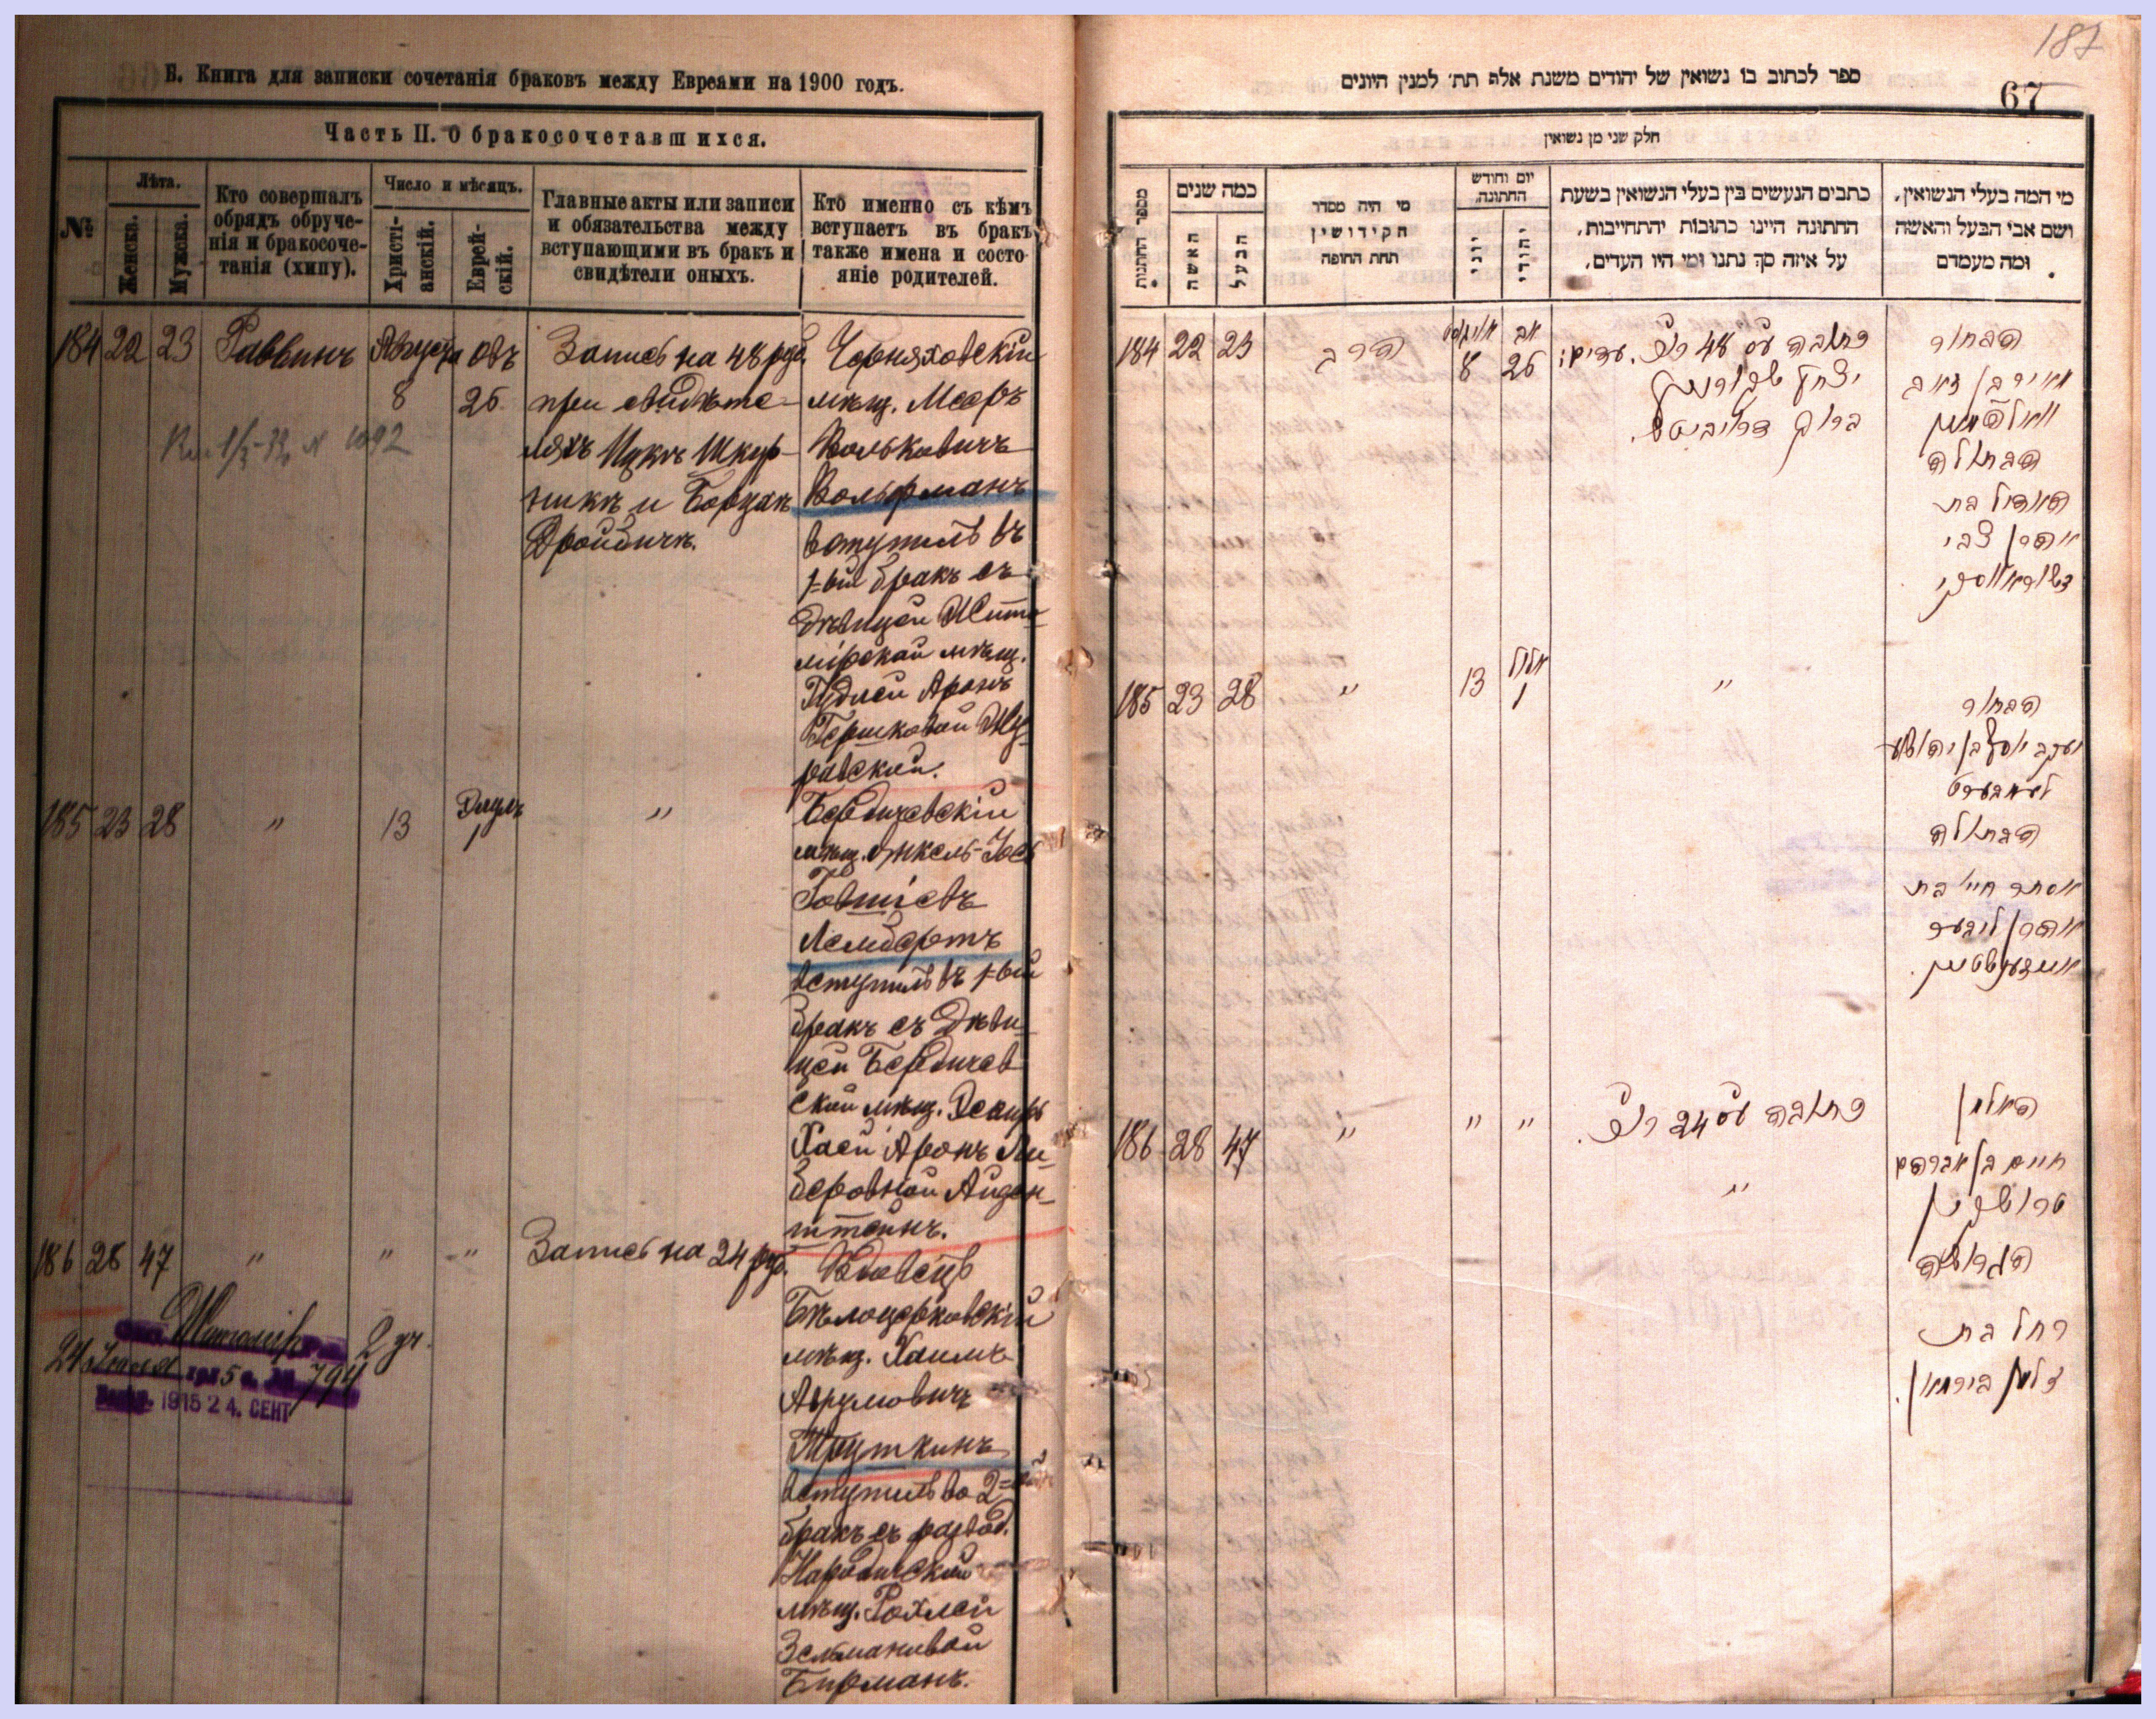 Б. Книга для записки сочетанія браковъ между Евреами на 1900 годъ.
Часть II. О бракосочетавшихся.
№
Лѣта.
Женска.
Мужска.
Кто совершалъ
обрядъ обруче-
нія и бракосоче-
танія (хипу).
Число и мѣсяцъ.
Христі-
анскій.
Еврей-
скій.
Главные акты или записи
и обязательства между
вступающими въ бракъ и
свидѣтели оныхъ.
Кто именно съ кѣмъ
вступаетъ въ бракъ
также имена и состо-
яніе родителей.
184 22 23 Раввинъ Августа 8 Овъ 26
Запись на 48 руб.
при свидѣте-
ляхъ Ицкъ Шкур-
никъ и Борухъ
Дройбичъ.
Черняховскій
мѣщ. Мееръ
Вольковичъ
Вольфманъ
вступилъ въ
1-ый бракъ съ
дѣвицей Жито-
мірской мѣщ.
Гудлей Аронъ
Гершковой Жу-
равской.
185 23 28 " 13 Элулъ 1 "
Бердичевскій
мѣщ. Янкель-Іось
Говшіевъ
Лембертъ
вступилъ въ 1-ый
бракъ съ дѣви-
цей Бердичев
ской мѣщ. Эсфирь
Хаей Аронъ Ли-
беровной Айзен-
штейнъ.
186 28 47 " " "
Запись на 24 руб.
Вдовецъ
Бѣлоцерковскій
мѣщ. Хаимъ
Аврумовичъ
Труткинъ
вступилъ во 2-ой
бракъ съ развод.
Народичской
мѣщ. Рохлей
Зельмановой
Бирманъ.
794
1915 24. СЕНТ
187
67
ספר לכתוב בו נשואין של יהודים משנת אלף תת׳ למנין היונים
חלק שני מן נשואין
מספר החתונות
כמה שנים
האשה
הבעל
מי היה מסדר
הקידושין
תחת החופה
יום וחודש
החתונה
יוני
יהודי
כתבים הנעשים בין בעלי הנשואין בשעת
החתונה היינו כתובות יהתחייבות,
על איזה סך נתנו ומי היו העדים,
מי המה בעלי הנשואין,
ושם אבי הבעל והאשה
ומה מעמדם
184 22 23 הרב אויגוסט 8 אב 26
כתובה עס 48 רוב. עדים:
יצחק שקורניק
ברוך דרויביטש.
הבחור
מאיר בן זאב
וואלפמאן
הבתולה
האדיל בת
אהרן צבי
זשוראווסקי
185 23 28 " 13 אלול 1 "
הבחור
יעקב יוסף בן יהושע
לעמבערט
הבתולה
אסתר חי׳ בת
אהרן ליבער
אייזענשטיין.
186 28 47 " " "
כתובה עס 24 רוב.
"
האלמן
חיים בן אברהם
טרוטקין
הגרושה
רחל בת
זלמן בירמאן.